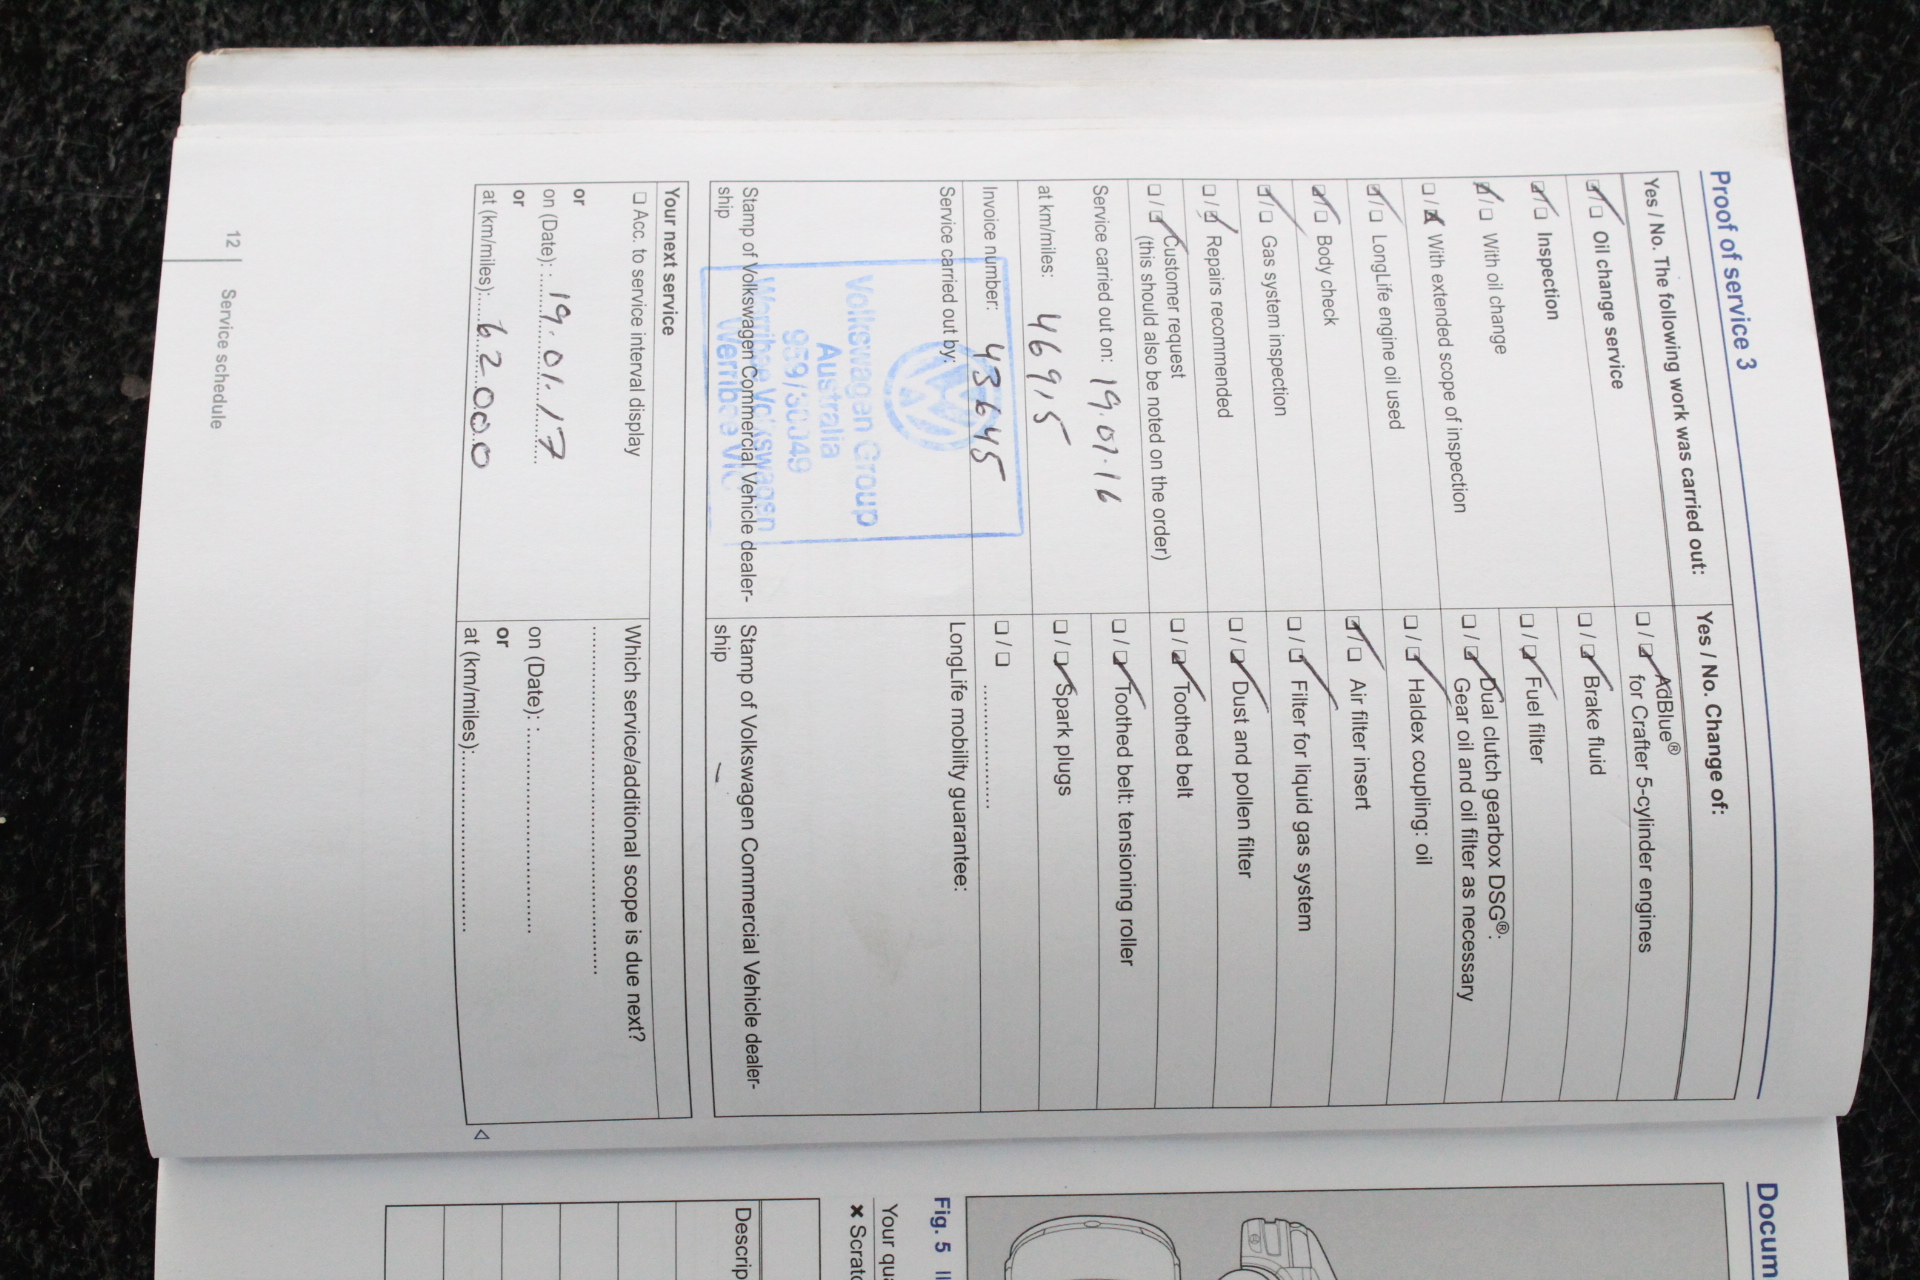 Proof of service 3
Yes / No. The following work was carried out:
☑/☐ Oil change service
☑/☐ Inspection
☑/☐ With oil change
☐/☒ With extended scope of inspection
☑/☐ LongLife engine oil used
☑/☐ Body check
☑/☐ Gas system inspection
☐/☑ Repairs recommended
☐/☑ Customer request
(this should also be noted on the order)
Service carried out on: 19.07.16
at km/miles: 46915
Invoice number: 43645
Service carried out by:
Volkswagen Group
Australia
959/30049
Werribee Volkswagen
Werribee Vic
Stamp of Volkswagen Commercial Vehicle dealer-
ship
Yes / No. Change of:
☐/☑ AdBlue®
for Crafter 5-cylinder engines
☐/☑ Brake fluid
☐/☑ Fuel filter
☐/☑ Dual clutch gearbox DSG®:
Gear oil and oil filter as necessary
☐/☑ Haldex coupling: oil
☑/☐ Air filter insert
☐/☑ Filter for liquid gas system
☐/☑ Dust and pollen filter
☐/☑ Toothed belt
☐/☑ Toothed belt: tensioning roller
☐/☑ Spark plugs
☐/☐ ..................
LongLife mobility guarantee:
Stamp of Volkswagen Commercial Vehicle dealer-
ship
Your next service
☐ Acc. to service interval display
or
on (Date): 19.01.17
or
at (km/miles): 62000
Which service/additional scope is due next?
on (Date):
or
at (km/miles):
12 Service schedule
Docum
Fig. 5
Your qua
× Scratc
Descrip